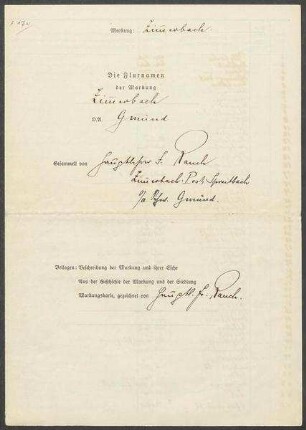 Markung Zimmerbach
Die Flurnamen
der Markung
Zimmerbach
O.A. Gmünd
Gesammelt von Hauptlehrer F. Rauch
Zimmerbach. Post: Spraitbach
O/A Schw. Gmünd.
Beilagen: Beschreibung der Markung und ihrer Orte
Aus der Geschichte der Markung und der Siedlung
Markungskarte, gezeichnet von Hauptl. Fr. Rauch.